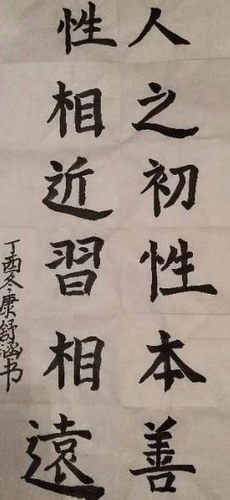 人之初性本善
性相近習相遠
丁酉冬康舒涵书